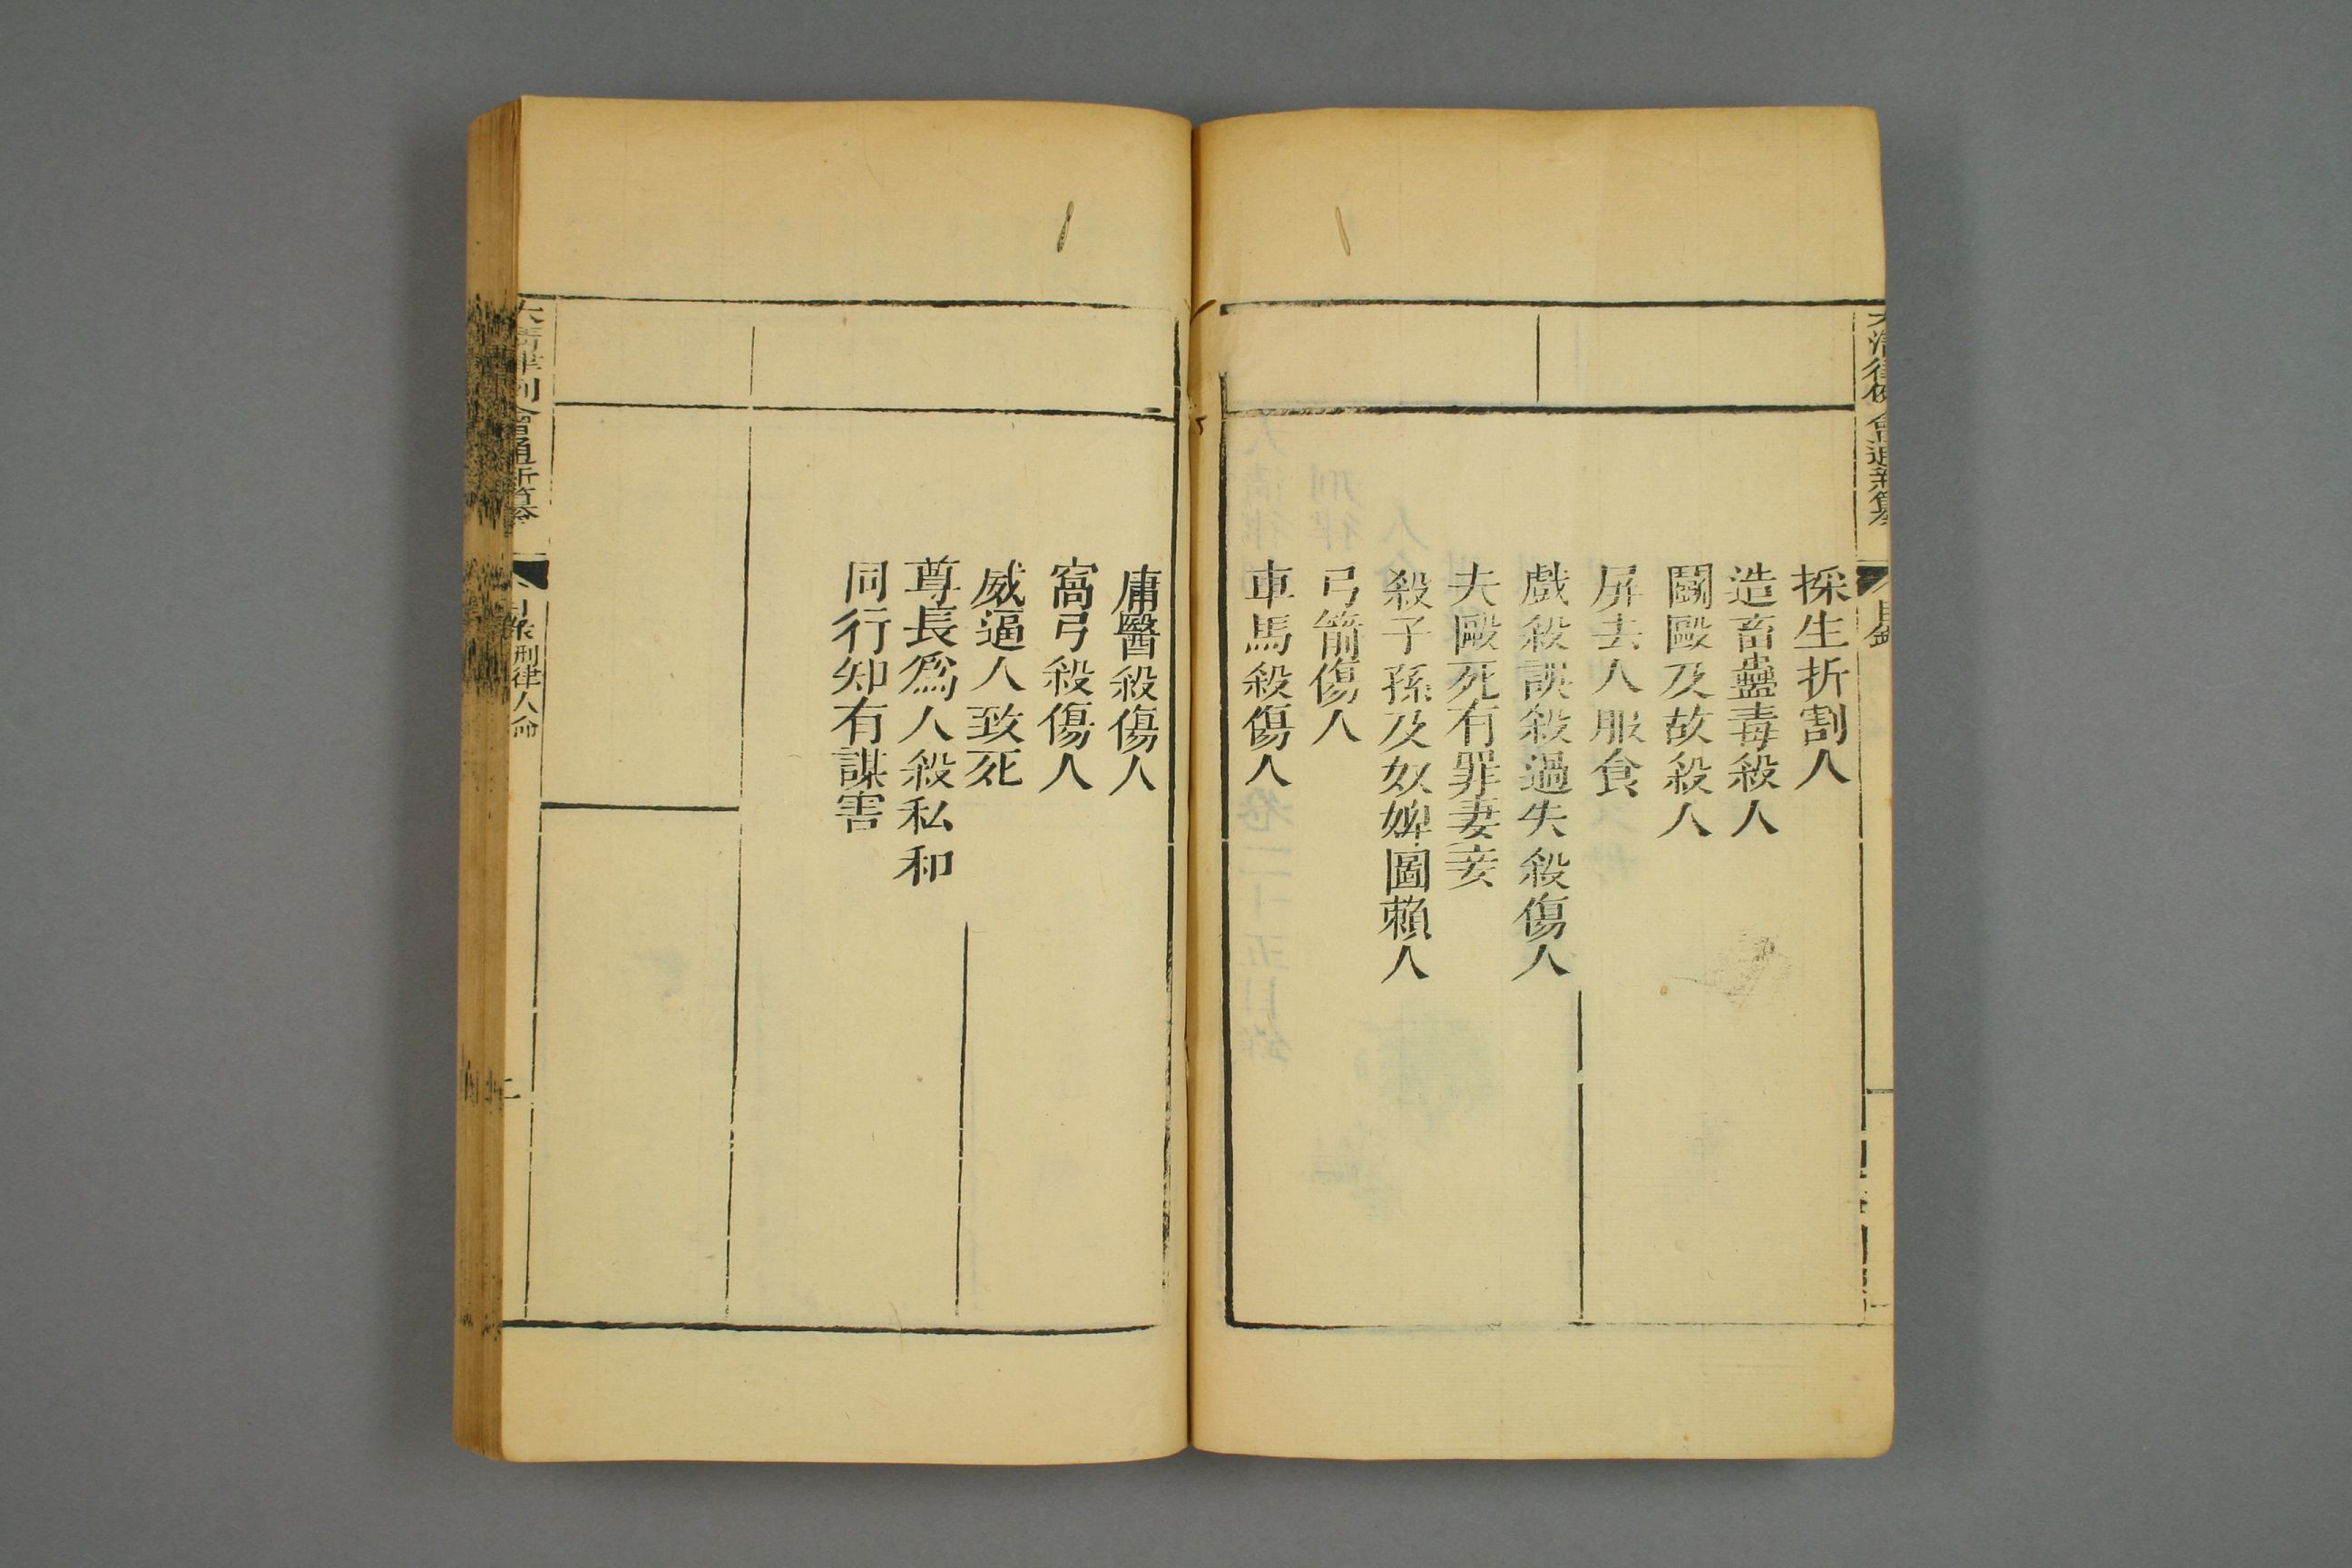 大清律例會通新纂
目錄
採生折割人
造畜蠱毒殺人
鬭毆及故殺人
屏去人服食
戲殺誤殺過失殺傷人
夫毆死有罪妻妾
殺子孫及奴婢圖賴人
弓箭傷人
車馬殺傷人
庸醫殺傷人
窩弓殺傷人
威逼人致死
尊長爲人殺私和
同行知有謀害
大清律例會通新纂
目錄 刑律人命
二